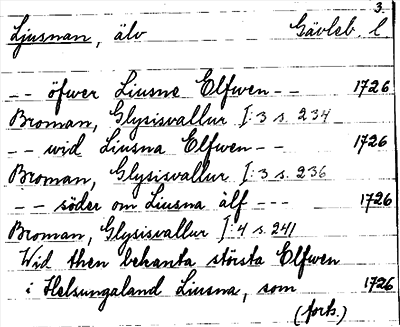 3.
Ljusnan, älv Gävleb. l
-- öfwer Liusne Elfwen -- 1726
Broman, Glysisvallur I:3 s. 234
-- wid Liusna Elfwen -- 1726
Broman, Glysisvallur I:3 s. 236
-- söder om Liusna älf --- 1726
Broman, Glysisvallur I:4 s. 241
Wid then bekanta största Elfwen
i Helsungaland Liusna, som 1726
(forts.)